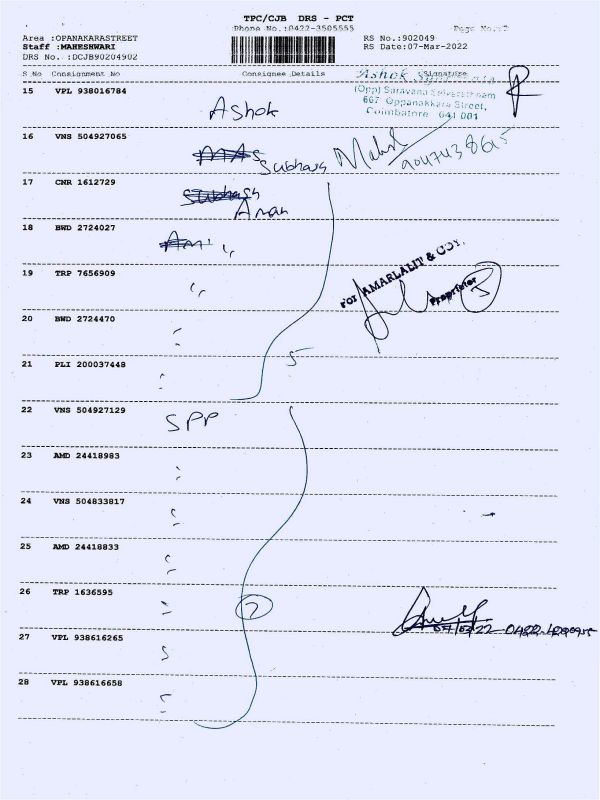 TPC/CJB DRS - PCT
Phone No.:0422-3505555
Area :OPANAKARASTREET
RS No.:902049
Staff :MAHESHWARI
RS Date:07-Mar-2022
DRS No. :DCJB90204902
S No Consignment No Consignee Details Signature
15 VPL 938016784
Ashok
(Opp) Saravana Selvarathnam
667 Oppanakkara Street,
Coimbatore 641 001
16 VNS 504927065
Subhas
17 CNR 1612729
Aman
18 BWD 2724027
19 TRP 7656909
For AMARLALIT & COY.
Proprietor
5
20 BWD 2724470
5
21 PLI 200037448
22 VNS 504927129
SPP
23 AMD 24418983
24 VNS 504833817
25 AMD 24418833
26 TRP 1636595
7
27 VPL 938616265
28 VPL 938616658